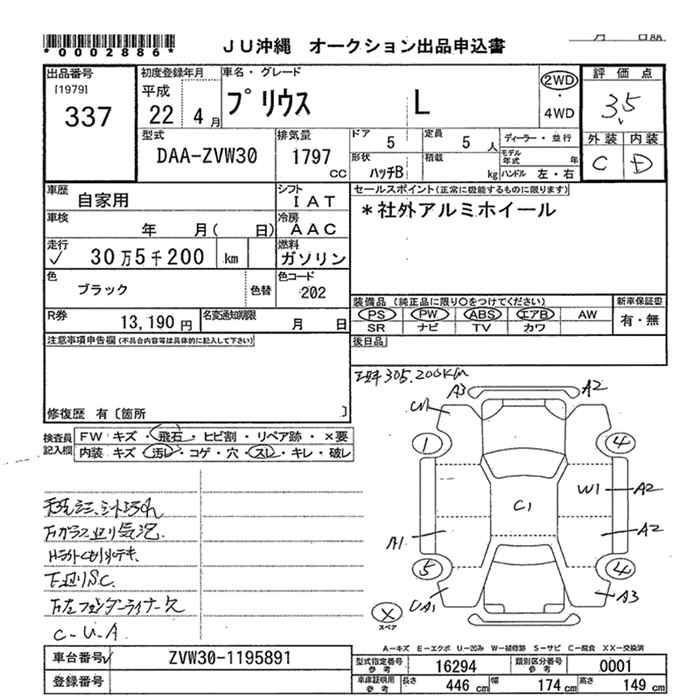 *0002886*
JU沖縄 オークション出品申込書
出品番号 初度登録年月 車名・グレード 評価点
[1979] 平成 プリウス L 2WD 3.5
337 22 4月 4WD
外装 内装
型式 排気量 ドア 5 定員 5人 ディーラー・並行 C D
DAA-ZVW30 1797cc 形状 ハッチB 積載 kg モデル年式 年
ハンドル 左・右
車歴 自家用 シフト IAT セールスポイント(正常に機能するものに限ります)
車検 年 月( 日) 冷房 AAC *社外アルミホイール
走行 ✓ 30万5千200 km 燃料 ガソリン
色 ブラック 色替 色コード 202
装備品(純正品に限り○をつけてください) 新車保証書
R券 13,190円 名変通知期限 月 日 PS PW ABS エアB AW 有・無
SR ナビ TV カワ
注意事項申告欄(不具合内容等は具体的に記入して下さい) 後日品
305,200km
修復歴 有〔箇所 〕
検査員記入欄 FW キズ・飛石・ヒビ割・リペア跡・×要
内装 キズ・汚レ・コゲ・穴・スレ・キレ・破レ
A3 A2
1 4
W1 A2
C1
A1 A2
5 4
UA1 A3
×
スペア
下廻りS.C.
C-U.A
A-キズ E-エクボ U-凹み W-補修跡 S-サビ C-腐食 XX-交換済
車台番号✓ ZVW30-1195891 型式指定番号 参考 16294 類別区分番号 参考 0001
登録番号 車庫証明用 参考 長さ 446cm 幅 174cm 高さ 149cm